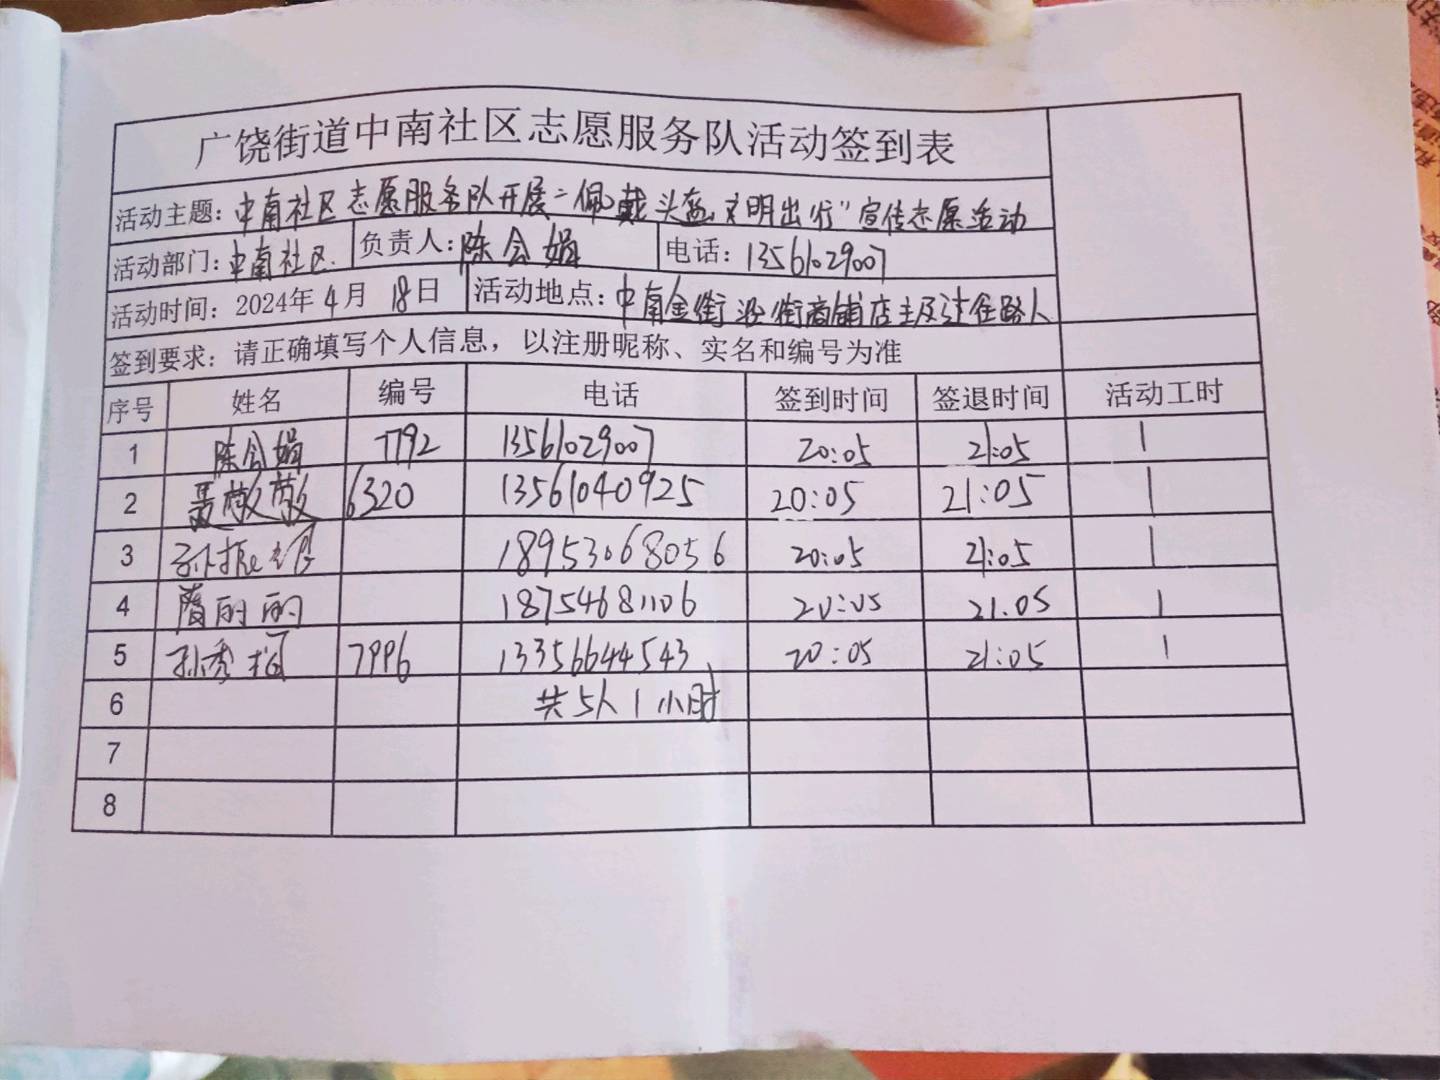 广饶街道中南社区志愿服务队活动签到表
活动主题：中南社区志愿服务队开展"佩戴头盔 文明出行"宣传志愿活动
活动部门：中南社区 负责人：陈会娟 电话：13561029007
活动时间：2024年4月18日 活动地点：中南金街沿街商铺店主及过往路人
签到要求：请正确填写个人信息，以注册昵称、实名和编号为准
序号 姓名 编号 电话 签到时间 签退时间 活动工时
1 陈会娟 7792 13561029007 20:05 21:05 1
2 聂敬敬 6320 13561040925 20:05 21:05 1
3 18953068056 20:05 21:05 1
4 隋丽丽 18754681106 20:05 21:05 1
5 孙秀 7996 13356644543 20:05 21:05 1
6 共5人1小时
7
8